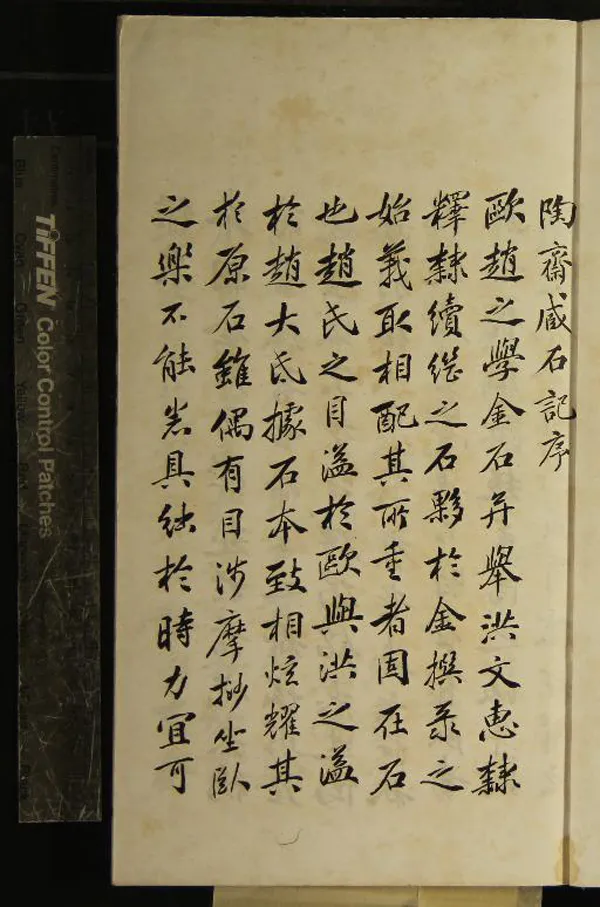 陶齋臧石記序
歐趙之學金石并舉洪文惠隸
釋隸續繼之石夥於金撰录之
始義取相配其所重者固在石
也趙氏之目溢於歐與洪之溢
於趙大氐據石本致相炫耀其
於原石雖偶有目涉摩抄坐臥
之樂不能悉具絀於時力宜可
TIFFEN Color Control Patches